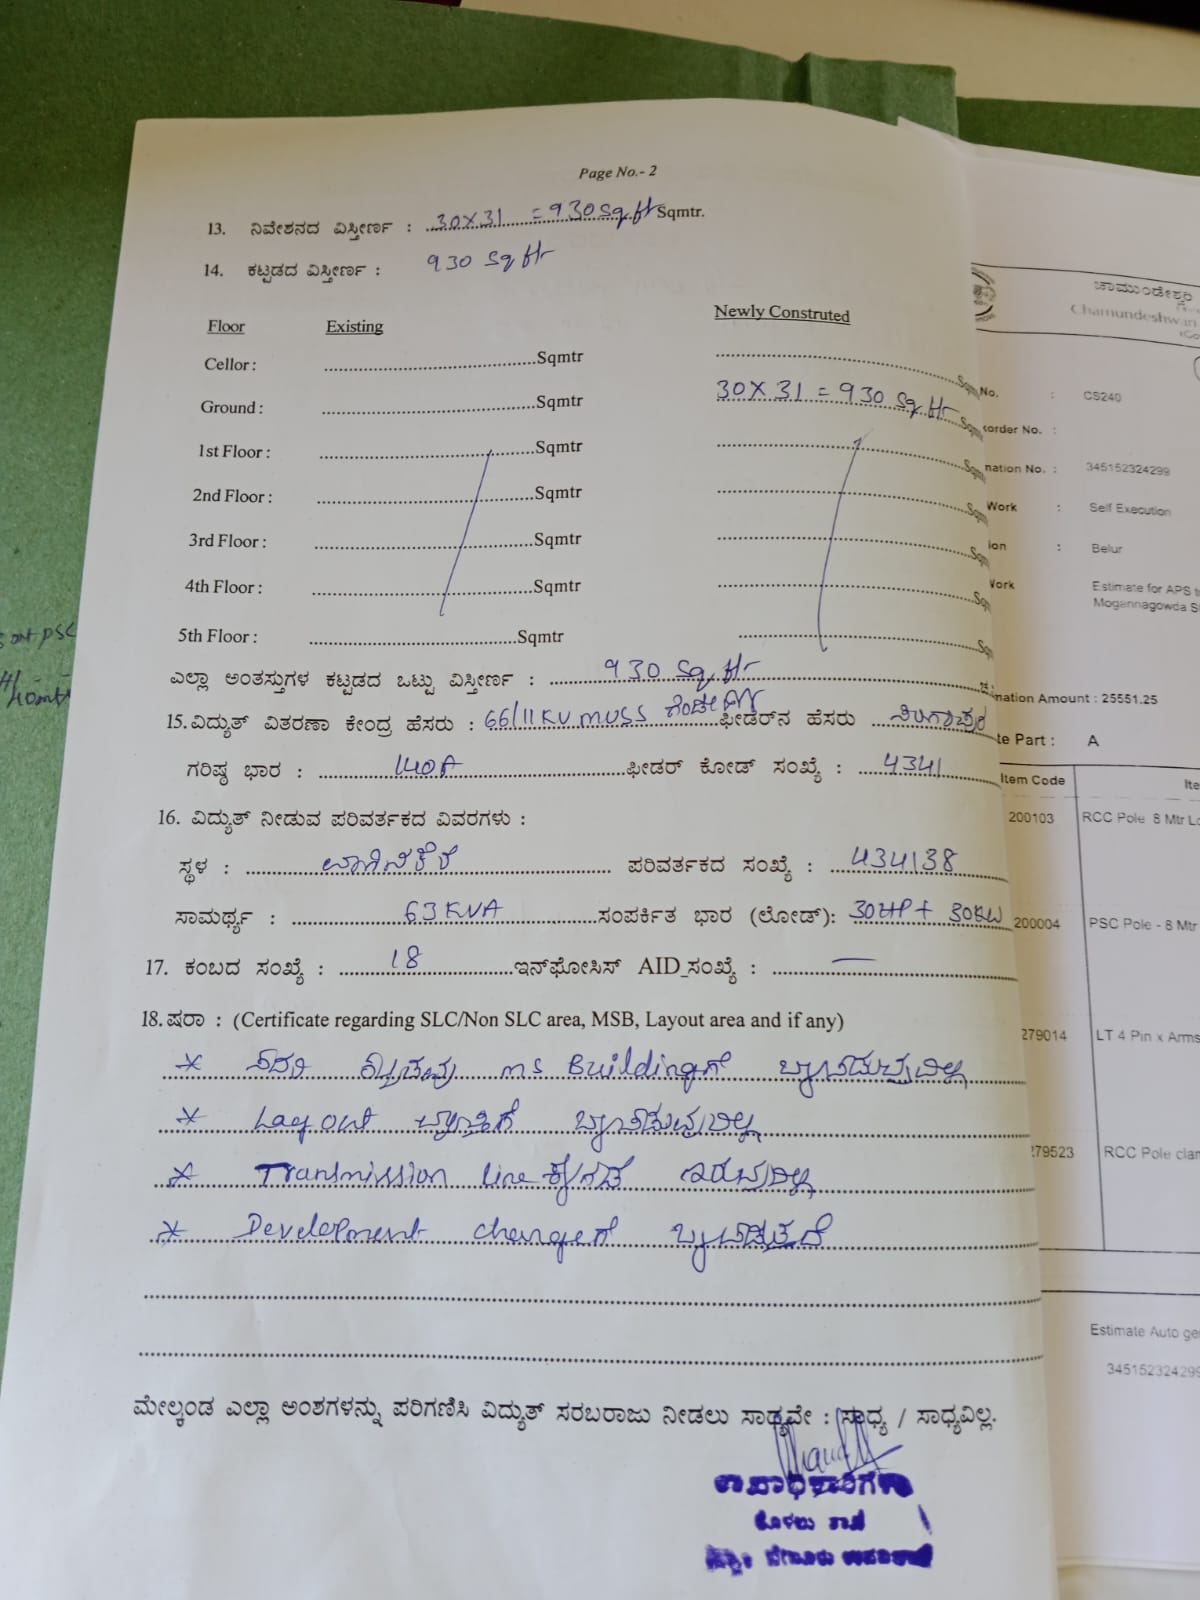 Page No.- 2
13. ನಿವೇಶನದ ವಿಸ್ತೀರ್ಣ : 30X31 = 930 sq ft Sqmtr.
14. ಕಟ್ಟಡದ ವಿಸ್ತೀರ್ಣ : 930 sq ft
Floor Existing Newly Construted
Cellor : Sqmtr Sqm
Ground : Sqmtr 30X31 = 930 sq ft Sqm
1st Floor : Sqmtr Sqm
2nd Floor : Sqmtr Sqm
3rd Floor : Sqmtr Sqm
4th Floor : Sqmtr Sq
5th Floor : Sqmtr Sq
ಎಲ್ಲಾ ಅಂತಸ್ತುಗಳ ಕಟ್ಟಡದ ಒಟ್ಟು ವಿಸ್ತೀರ್ಣ : 930 sq ft
15. ವಿದ್ಯುತ್ ವಿತರಣಾ ಕೇಂದ್ರ ಹೆಸರು : 66/11KV MUSS ಫೀಡರ್‌ನ ಹೆಸರು
ಗರಿಷ್ಠ ಭಾರ : 140A ಫೀಡರ್ ಕೋಡ್ ಸಂಖ್ಯೆ : 4341
16. ವಿದ್ಯುತ್ ನೀಡುವ ಪರಿವರ್ತಕದ ವಿವರಗಳು :
ಸ್ಥಳ : ಪರಿವರ್ತಕದ ಸಂಖ್ಯೆ : 434138
ಸಾಮರ್ಥ್ಯ : 63 KVA ಸಂಪರ್ಕಿತ ಭಾರ (ಲೋಡ್): 30HP + 30KW
17. ಕಂಬದ ಸಂಖ್ಯೆ : 18 ಇನ್‌ಫೋಸಿಸ್ AID ಸಂಖ್ಯೆ : —
18. ಷರಾ : (Certificate regarding SLC/Non SLC area, MSB, Layout area and if any)
* ಸದರಿ ms Buildingಗೆ
* Layout ವ್ಯಾಪ್ತಿಗೆ
* Transmission line ಕೆಳಗಡೆ ಇರುವುದಿಲ್ಲ
* Development chargeಗೆ
ಮೇಲ್ಕಂಡ ಎಲ್ಲಾ ಅಂಶಗಳನ್ನು ಪರಿಗಣಿಸಿ ವಿದ್ಯುತ್ ಸರಬರಾಜು ನೀಡಲು ಸಾಧ್ಯವೇ : ಸಾಧ್ಯ / ಸಾಧ್ಯವಿಲ್ಲ.
ಚಾಮುಂಡೇಶ್ವರಿ
Chamundeshwari
No. : CS240
korder No. :
nation No. : 345152324299
Work : Self Execution
ion : Belur
Work Estimate for APS t
Mogannagowda S
nation Amount : 25551.25
te Part : A
Item Code Ite
200103 RCC Pole 8 Mtr Lo
200004 PSC Pole - 8 Mtr
279014 LT 4 Pin x Arms
279523 RCC Pole clam
Estimate Auto ge
345152324299